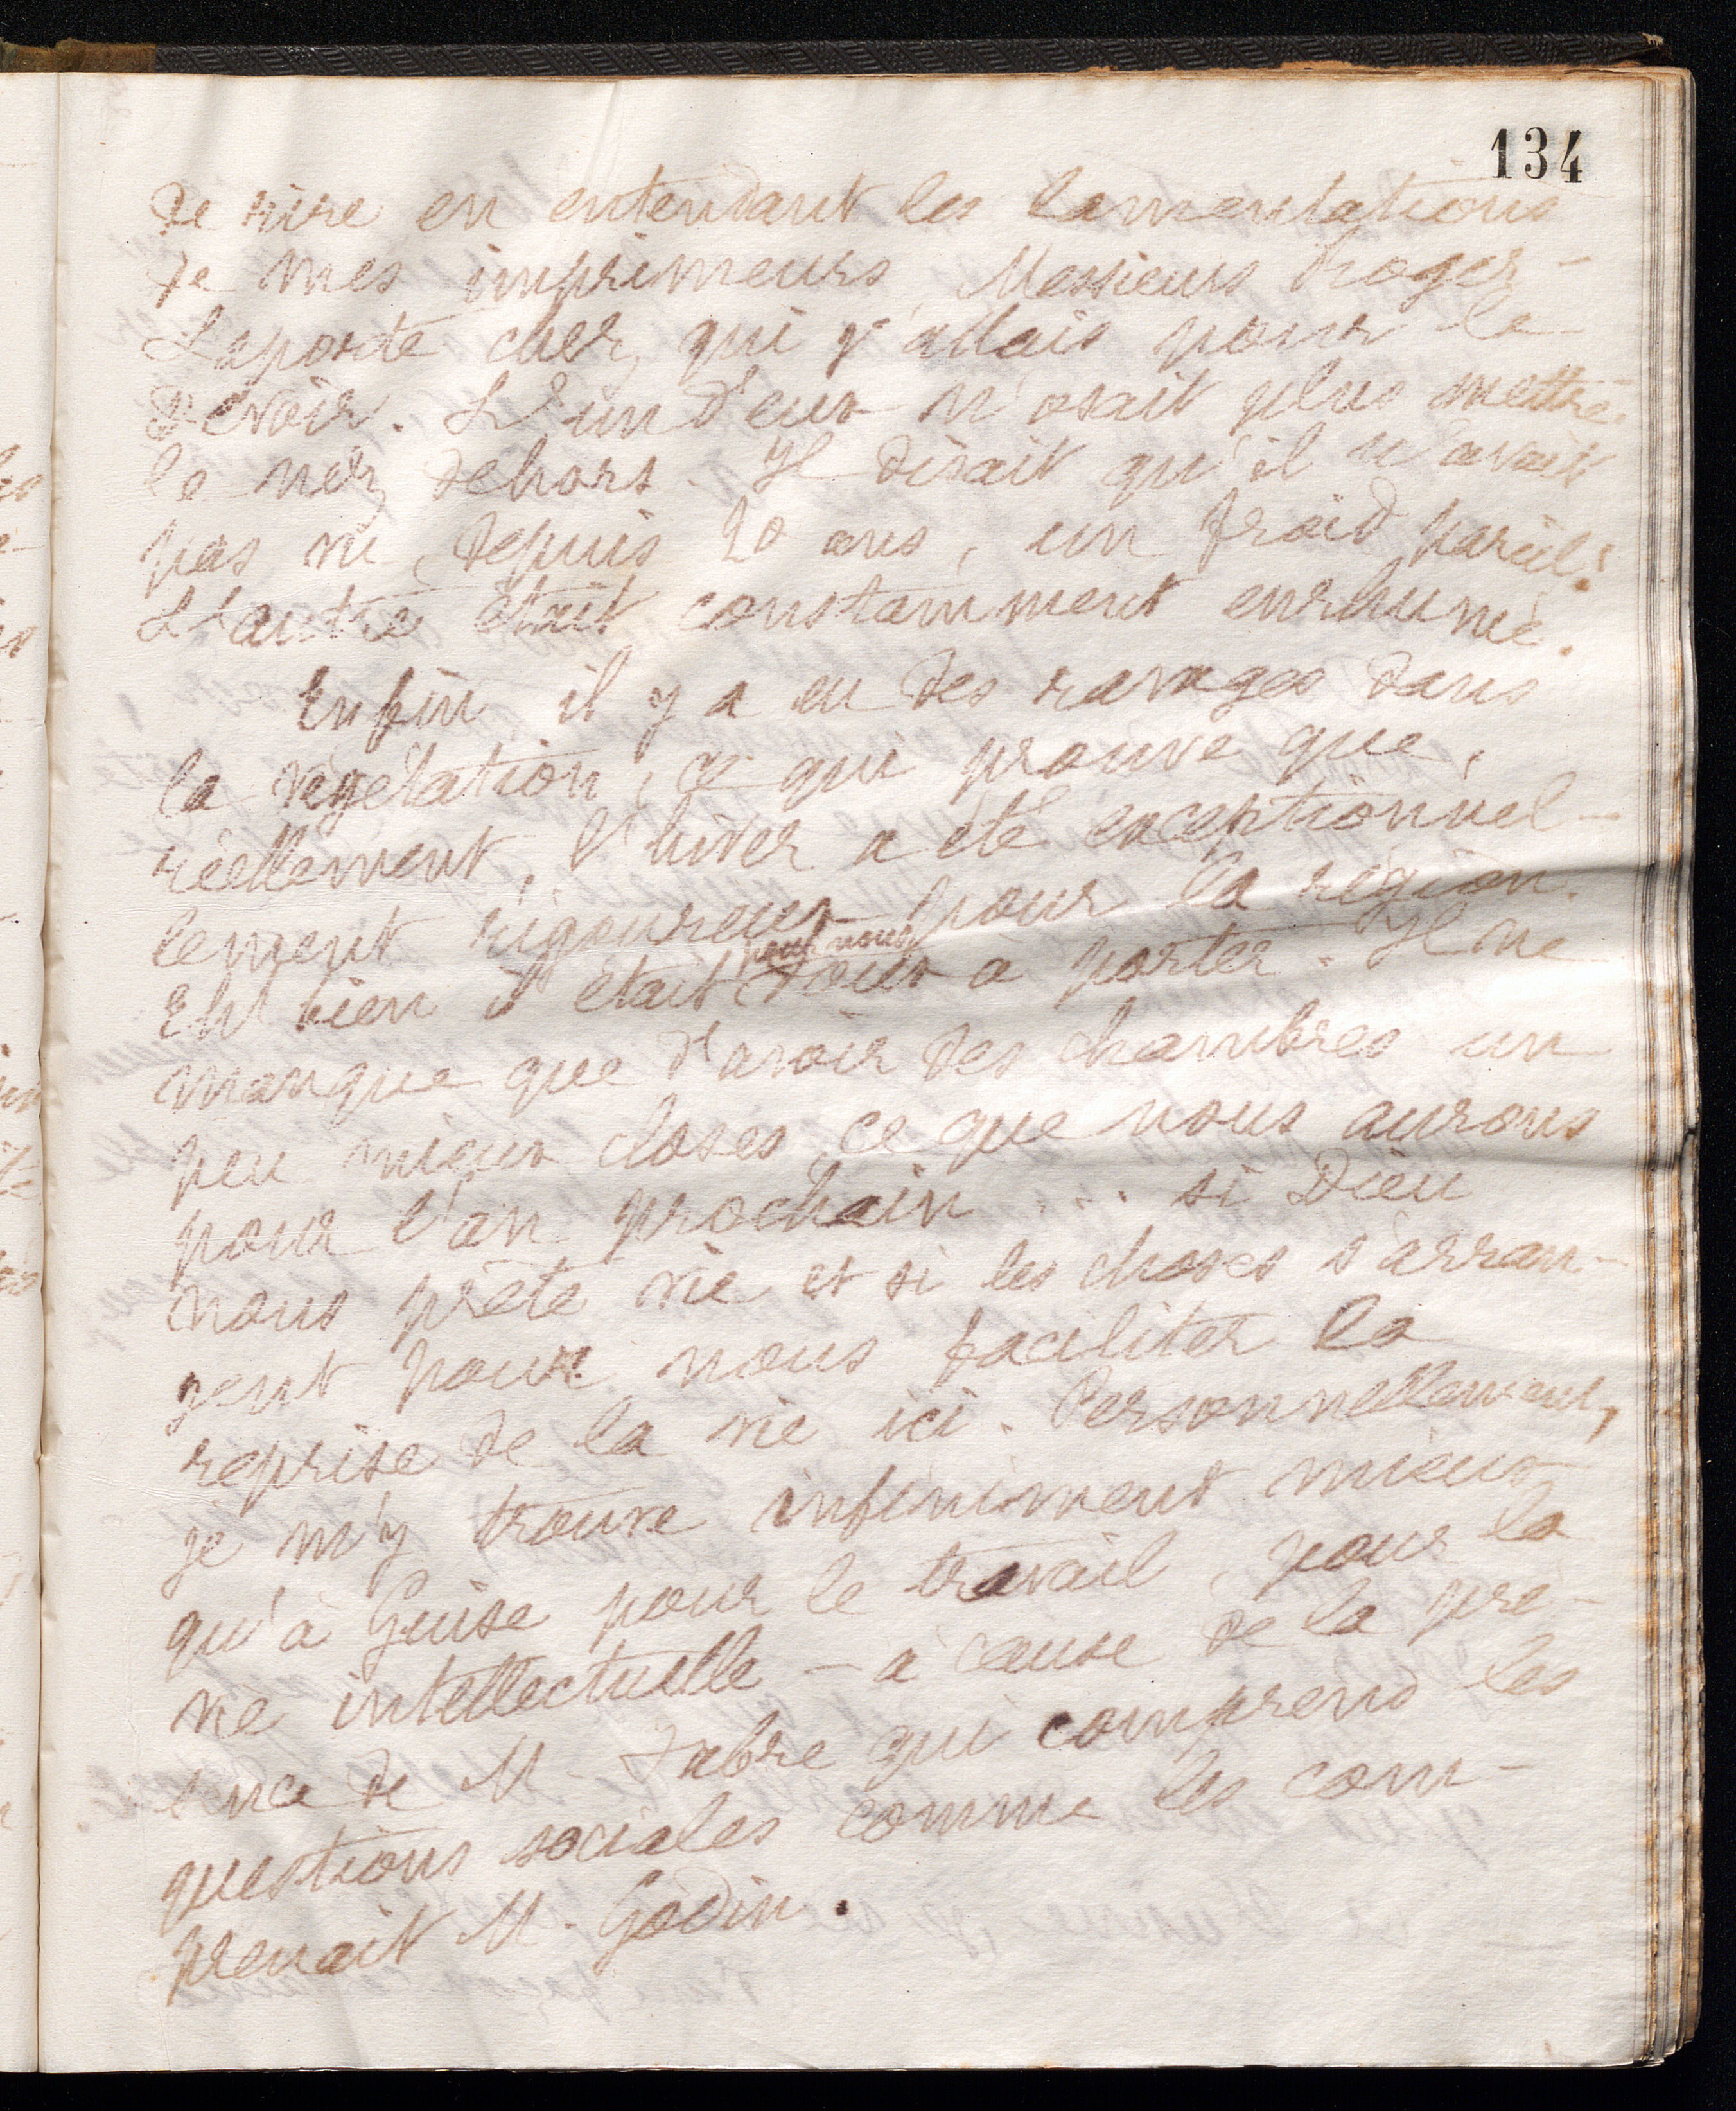 134
de rire en entendant les lamentations
de mes imprimeurs Messieurs Roger-
Laporte chez qui j'allais pour le
Devoir. L'un d'eux n'osait plus mettre
le nez dehors. Il disait qu'il n'avait
pas vu, depuis 20 ans, un froid pareil!
L'autre était constamment enrhumé.
Enfin il y a eu des ravages dans
la végétation, ce qui prouve que,
réellement, l'hiver a été exceptionnel-
lement rigoureux pour la région.
Eh! bien il était pour nous doux à porter. Il ne
manque que d'avoir des chambres un
peu mieux closes, ce que nous aurons
pour l'an prochain ... si Dieu
nous prête vie et si les choses s'arran-
gent pour nous faciliter la
reprise de la vie ici. Personnellement,
je m'y trouve infiniment mieux
qu'à Guise pour le travail, pour la
vie intellectuelle - à cause de la pré-
sence de M. Fabre qui comprend les
questions sociales comme les com-
prenait M. Godin.